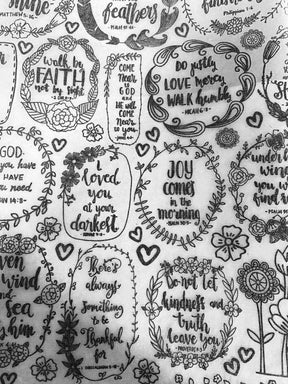 MATTHEW 5:16
feathers
PSALM 91:4
walk by
FAITH
not by sight
2 COR 5:7
Come
Near
to
GOD
and
He will
come
Near
to you
Do justly
LOVE mercy
WALK humbly
MICAH 6:8
GOD
you have
HAVE
you need
I
loved
you
at your
darkest
ROMANS 5:8
JOY
comes
in the
morning
PSALM 30:5
under
wing
you w
find
PSALM
even
wind
and
sea
him
There's
always
Something
to be
Thankful
for
THESSALONIANS 5:18
Do not let
kindness and
truth
leave you
PROVERBS 3:3